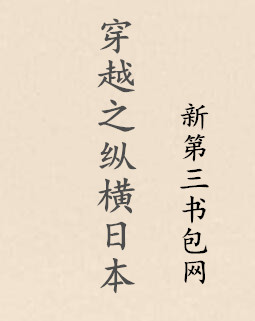 穿越之纵横日本
新第三书包网